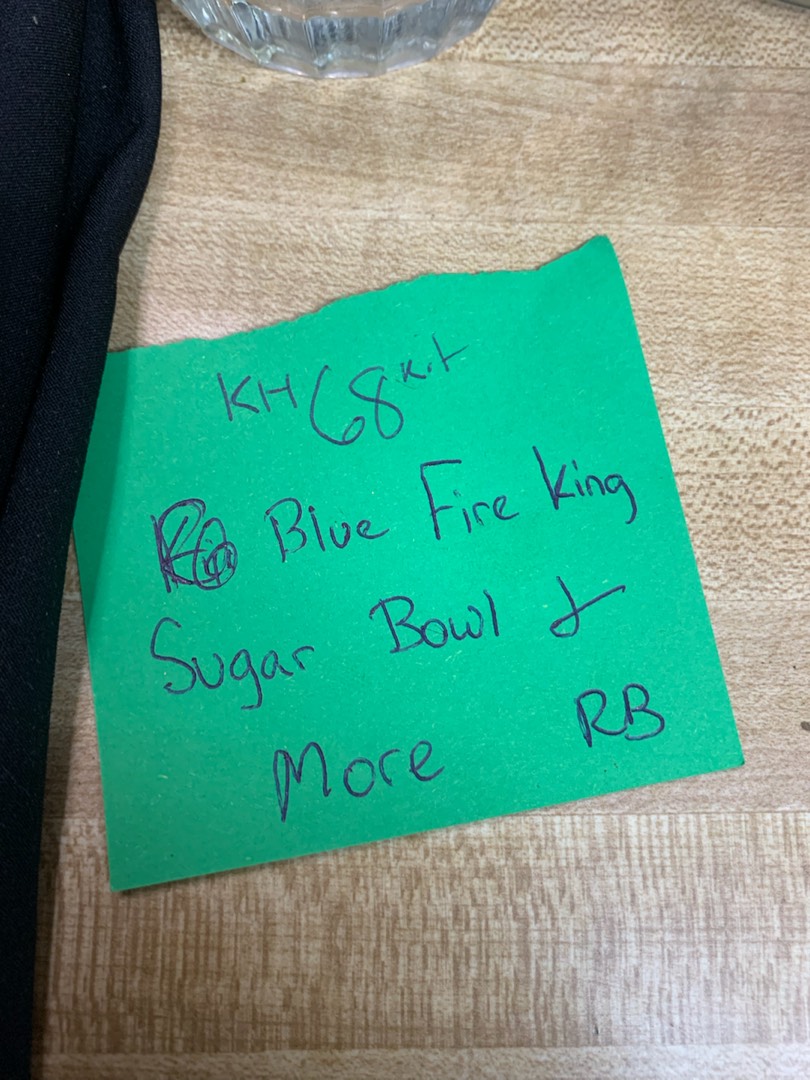 KH 68 Kit
Blue Fire King
Sugar Bowl &
More RB